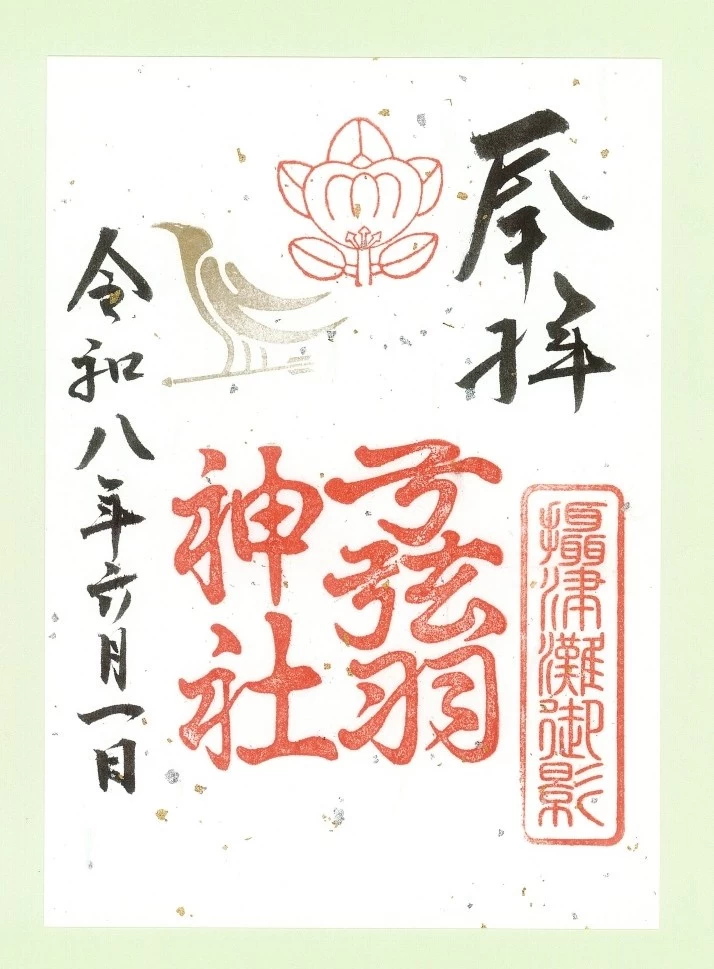 奉拝
攝津灘御影
弓弦羽
神社
令和八年六月一日